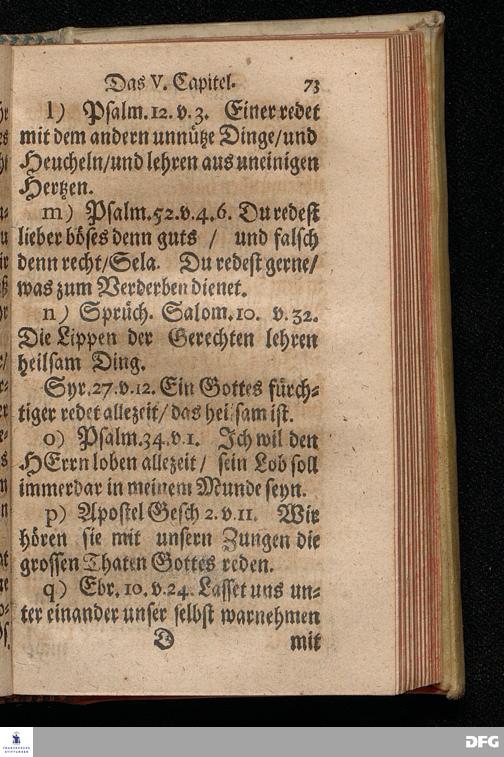 Das V. Capitel. 73
l) Psalm.12.v.3. Einer redet
mit dem andern unnütze Dinge/und
Heucheln/und lehren aus uneinigen
Hertzen.
m) Psalm.52.v.4.6. Du redest
lieber böses denn guts / und falsch
denn recht/Sela. Du redest gerne/
was zum Verderben dienet.
n) Sprüch. Salom.10. v.32.
Die Lippen der Gerechten lehren
heilsam Ding.
Syr.27.v.12. Ein Gottes fürch-
tiger redet allezeit/das heilsam ist.
o) Psalm.34.v.1. Ich wil den
HErrn loben allezeit/ sein Lob soll
immerdar in meinem Munde seyn.
p) Apostel Gesch 2.v.11. Wir
hören sie mit unsern Zungen die
grossen Thaten Gottes reden.
q) Ebr.10.v.24. Lasset uns un-
ter einander unser selbst warnehmen
D mit
FRANCKESCHE STIFTUNGEN
DFG